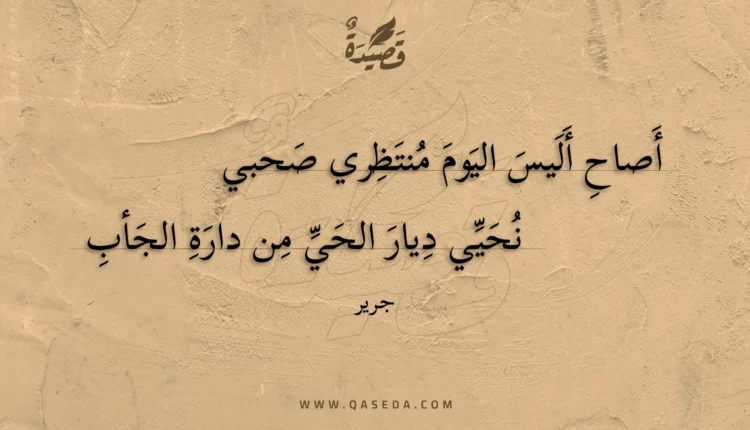 قَصِيدَةٌ
أَصاحِ أَلَيسَ اليَومَ مُنتَظِري صَحبي
نُحَيِّي دِيارَ الحَيِّ مِن دارَةِ الجَأبِ
جرير
WWW.QASEDA.COM